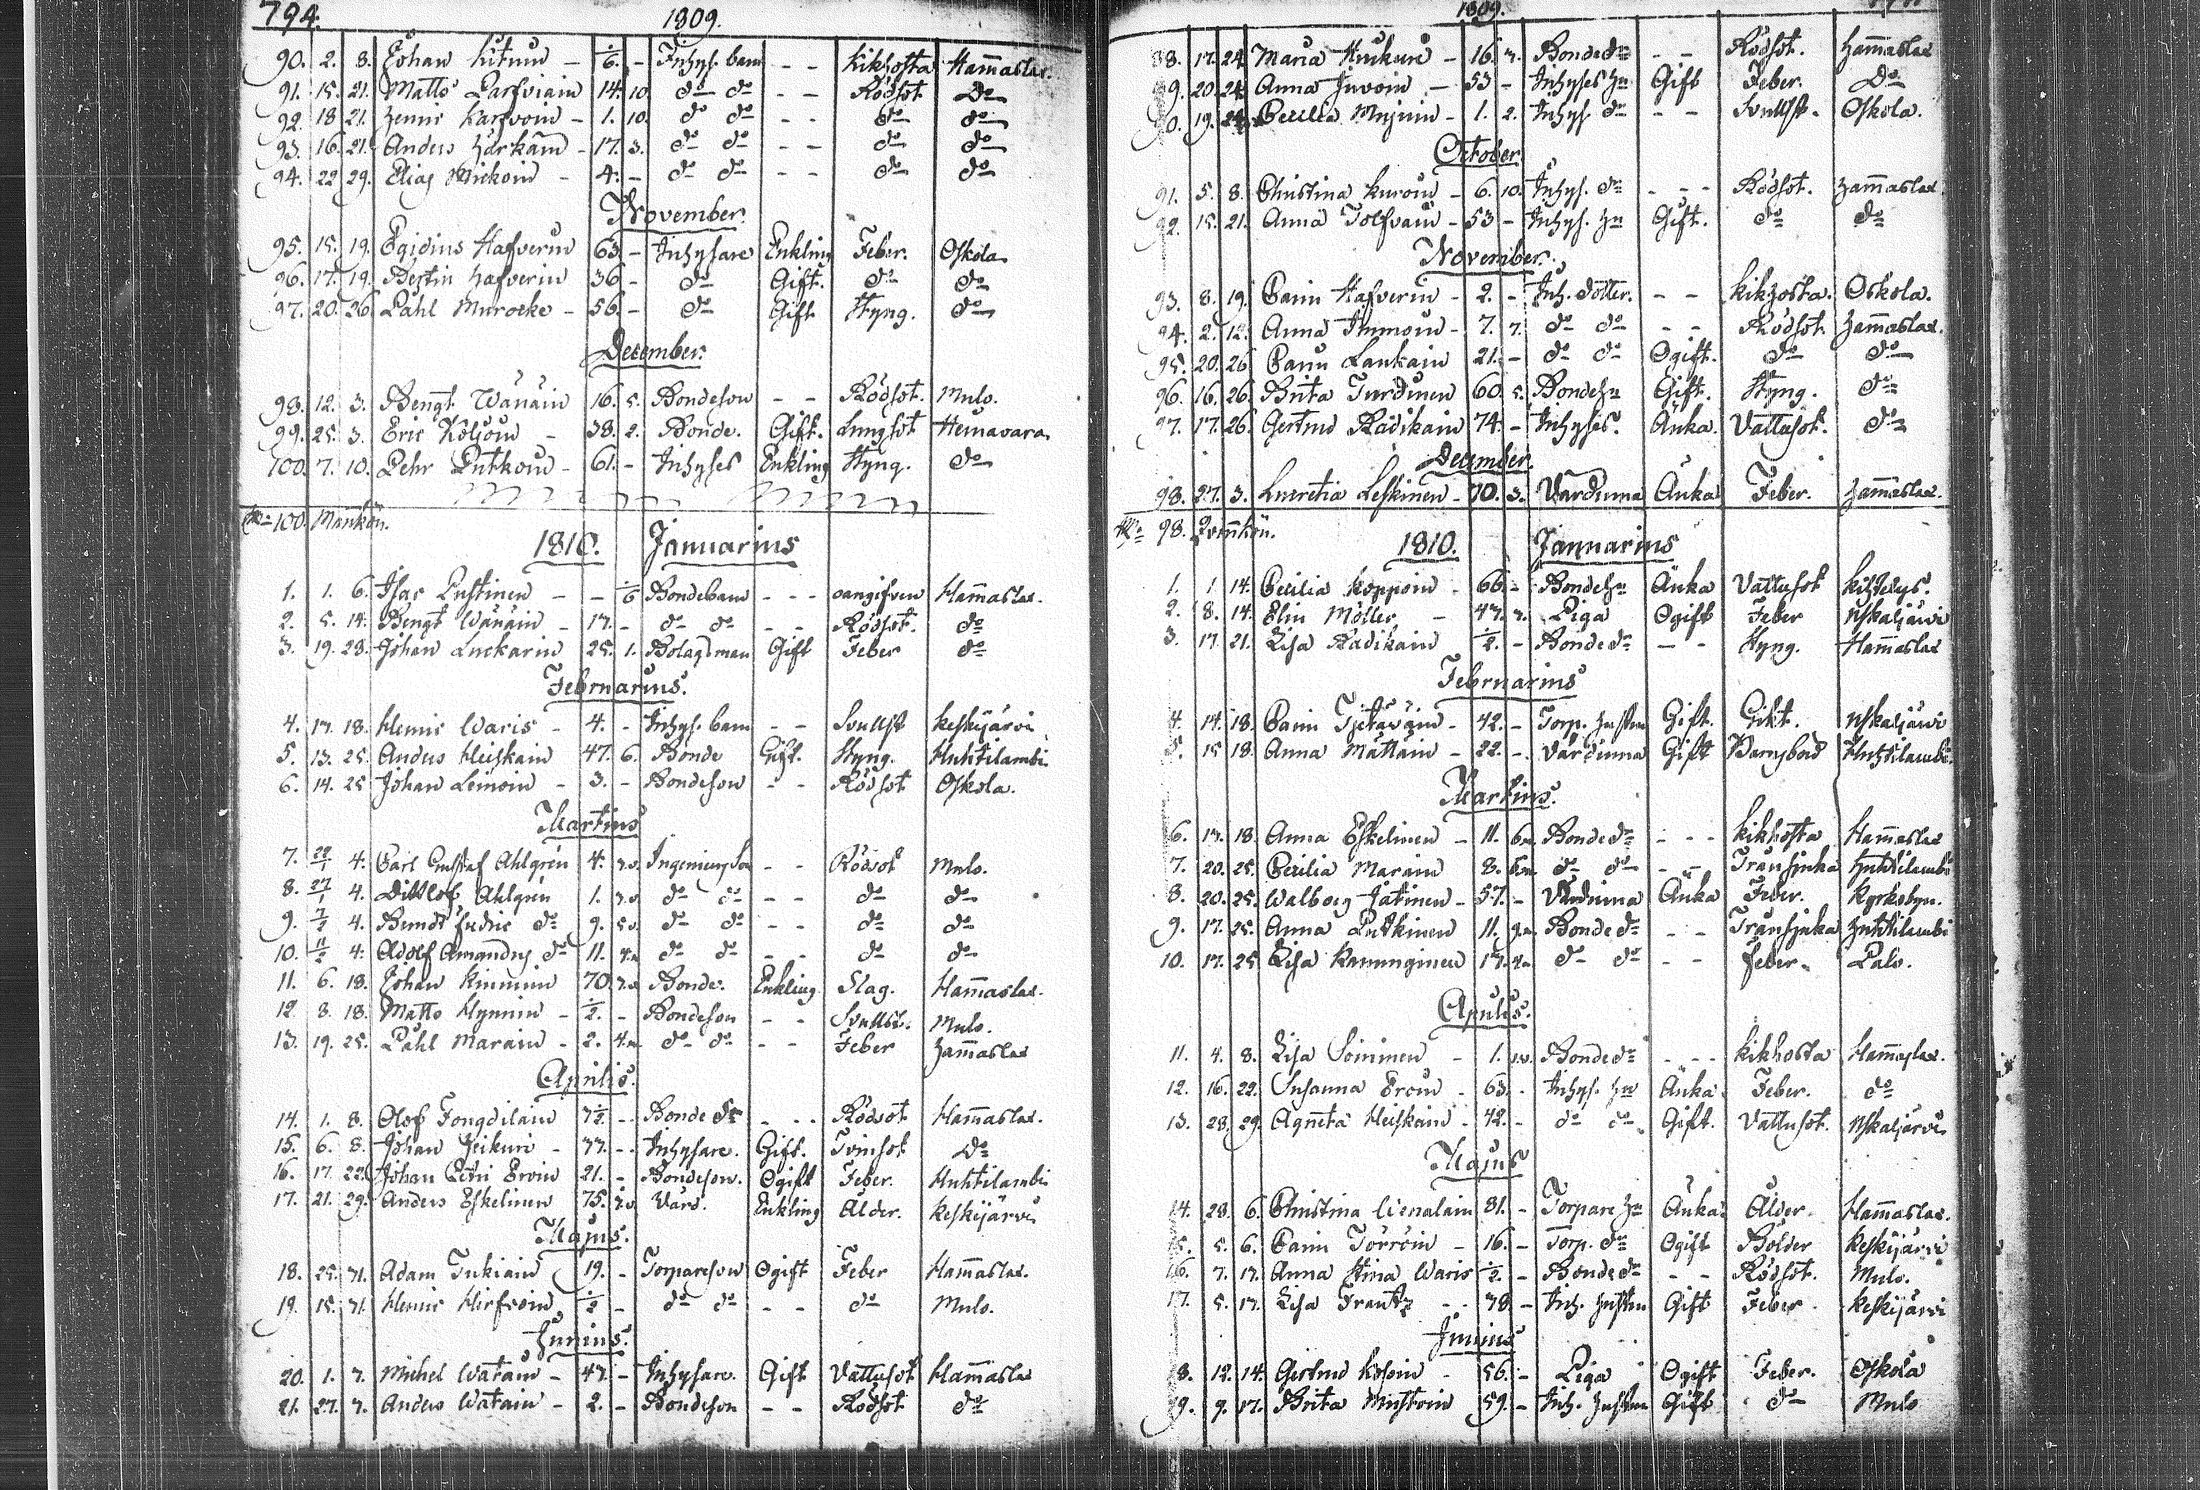 794. 1809.
90. 2. 8. Johan Kitunn - 6. - Inhys. barn - - Kikhosta Hammaslax.
91. 15. 21. Matts Parfviain 14. 10. do do - - Rödsot Do
92. 18 21. Henric Karfvoin - 1. 10. do do - - do do
93. 16. 21. Anders Härkäin - 17. 3. do do - - do do
94. 22 29. Elias Mickoin - 4. - do do - - do do
November.
95. 15. 19. Egidius Hafverin 63. - Inhysare Enkling Feber. Oskola
96. 17. 19. Bertin Hafverin 36 - do Gift. do do
97. 20. 26. Påhl Muroeke - 56. - do Gift Styng. do
December.
98. 12. 3. Bengt Wänäin 16. 5. Bondeson - - Rödsot. Mulo.
99. 25. 3. Eric Koljoin - 38. 2. Bonde. Gift. Lungsot Heinavara
100. 7. 10. Pehr Putkoin - 61. - Inhyses Enkling Styng. do
100. Mankön.
1810. Januarius
1. 1. 6. Isac Pustinen - - 6 Bondebarn - - - oangifven Hammaslax.
2. 5. 14. Bengt Wänäin - 17. - do do - - Rödsot. do
3. 19. 23. Johan Luckarin 25. 1. Bolagsman Gift Feber do
Februarius.
4. 17. 18. Henric Waris - 4. - Inhys. barn - - Svullst Keskijärvi
5. 13. 25. Anders Heiskain 47. 6. Bonde Gift. Styng. Huhtilambi
6. 14. 25 Johan Leinoin - 3. - Bondeson - - Rödsot Oskola.
Martius
7. 4. Carl Gustaf Ahlgrén 4. Ingenieurs Son - - Rödsot Mulo.
8. 27/1 4. Ditlof Ahlgrén 1. do do - - do do
9. 4. Berndt Fredric do 9. do do - - do do
10. 4. Adolf Amandus do 11. do do - - do do
11. 6. 18. Johan Kinnuin 70. Bonde. Enkling Slag. Hammaslax.
12 8. 18. Matts Hynnin - 2. - Bondeson - - Svullst. Mulo.
13. 19. 25. Påhl Marain - 2. do do - - Feber Hammaslax
Aprilis.
14. 1. 8. Olof Tongdilain - - Bonde do - - Rödsot Hammaslax.
15. 6. 8. Johan Jeikuri - 77. - - Inhysare. Gift. Tvinsot Do
16. 17. 22. Johan Petri Ervoin 21. - Bondeson. Ogift Feber. Huhtilambi
17. 21. 29. Anders Eskelinen 75. Värd. Enkling Ålder. Keskijärvi
Majus.
18. 25. 71. Adam Tukiain 19. - Torpareson Ogift Feber Hammaslax.
19. 15. 71. Henric Hirfvoin 2 - do do - - do Mulo.
Junius.
20. 1. 7. Michel Watain - 47. - Inhysare. Gift Vattusot Hammaslax
21. 27. 7. Anders Watain - 2. - Bondeson - - Rödsot do
1809.
88. 17. 24. Maria Hiukuri - 16. 7. Bonde do - - Rödsot. Hammaslax
89. 20. 24. Anna Juvoin - 53 - Inhyses Hu Gift Feber. Do
90. 19. 24. Cecilia Mujuin - 1. 2. Inhys. do - - Svullst. Oskola.
October
91. 5. 8. Christina Kuroin - 6. 10. Inhys. do - - - Rödsot. Hammaslax
92. 15. 21. Anna Tolfvain - 53 - Inhys. Hu Gift. do do
November.
93. 8. 19. Carin Hafverin - 2. - Inh. dotter. - - Kikhosta. Oskola.
94. 2. 12. Anna Immoin - 7. 7. do do - - Rödsot. Hammaslax.
95. 20. 26 Carin Laukain 21. - do do Ogift. do do
96. 16. 26. Brita Turduinen 60. 5. Bondehu Gift. Styng. do
97. 17. 26. Gertrud Rädikain 74. - Inhyses. Änka. Vattusot. do
December.
98. 27. 3. Lucretia Leskinen - 70. 3. Värdinna Änka Feber. Hammaslax.
98. Qvinnkön.
1810. Januarius
1. 1 14. Cecilia Koppoin - 66. - Bondehu Änka Vattusot Kihtelys.
2. 8. 14. Elin Möller - 47. 7. Piga Ogift Feber Uskaljärvi
3. 17 21. Lisa Rädikain 2. - Bonde do - - Styng. Hammaslax
Februarius
4. 14. 18. Carin Tjetäväin - 42. - Torp. Hustru Gift. Gikt. Uskaljärvi
5. 15 18. Anna Mattain - 22. - Värdinna Gift Barnsbörd Huhtilambi
Martius.
6. 17. 18. Anna Eskelinen - 11. Bonde do - - - Kikhosta Hammaslax
7. 20. 25. Cecilia Marain 8. do do - - Transjuka Huhtilambi
8. 20. 25. Walborg Jätinen - 57. - Värdinna Änka Feber. Kyrkobyn.
9. 17. 25. Anna Putkinen 11. Bonde do - - Transjuka Huhtilambi
10. 17. 25 Lisa Kanunginen 17. do do - - Feber. Palo.
Aprilis.
11. 4. 8. Lisa Soininen - 1. Bonde do - - - Kikhosta Hammaslax.
12. 16. 22. Susanna Eroin - 63. - Inhys. Hu Änka. Feber. do
13. 28. 29. Agneta Heiskain - 42. - do do Gift. Vattusot. Uskaljärvi
Majus
14. 28. 6. Christina Lienalain 81. - Torpare Hu Änka. Ålder. Hammaslax.
15. 5. 6. Carin Törröin - 16. - Torp. do Ogift Bölder Keskijärvi
16. 7. 17. Anna Stina Waris 2. - Bonde do - - Rödsot. Mulo.
17. 5. 17. Lisa Frantz - - 78. - Inh. Hustru Gift Feber Keskijärvi
Junius
18. 12. 14. Gertrud Kosoin - 56. - Piga Ogift Feber. Oskola
19. 9. 17. Brita Mustoin - 59. - Inh. Hustru Gift do Mulo